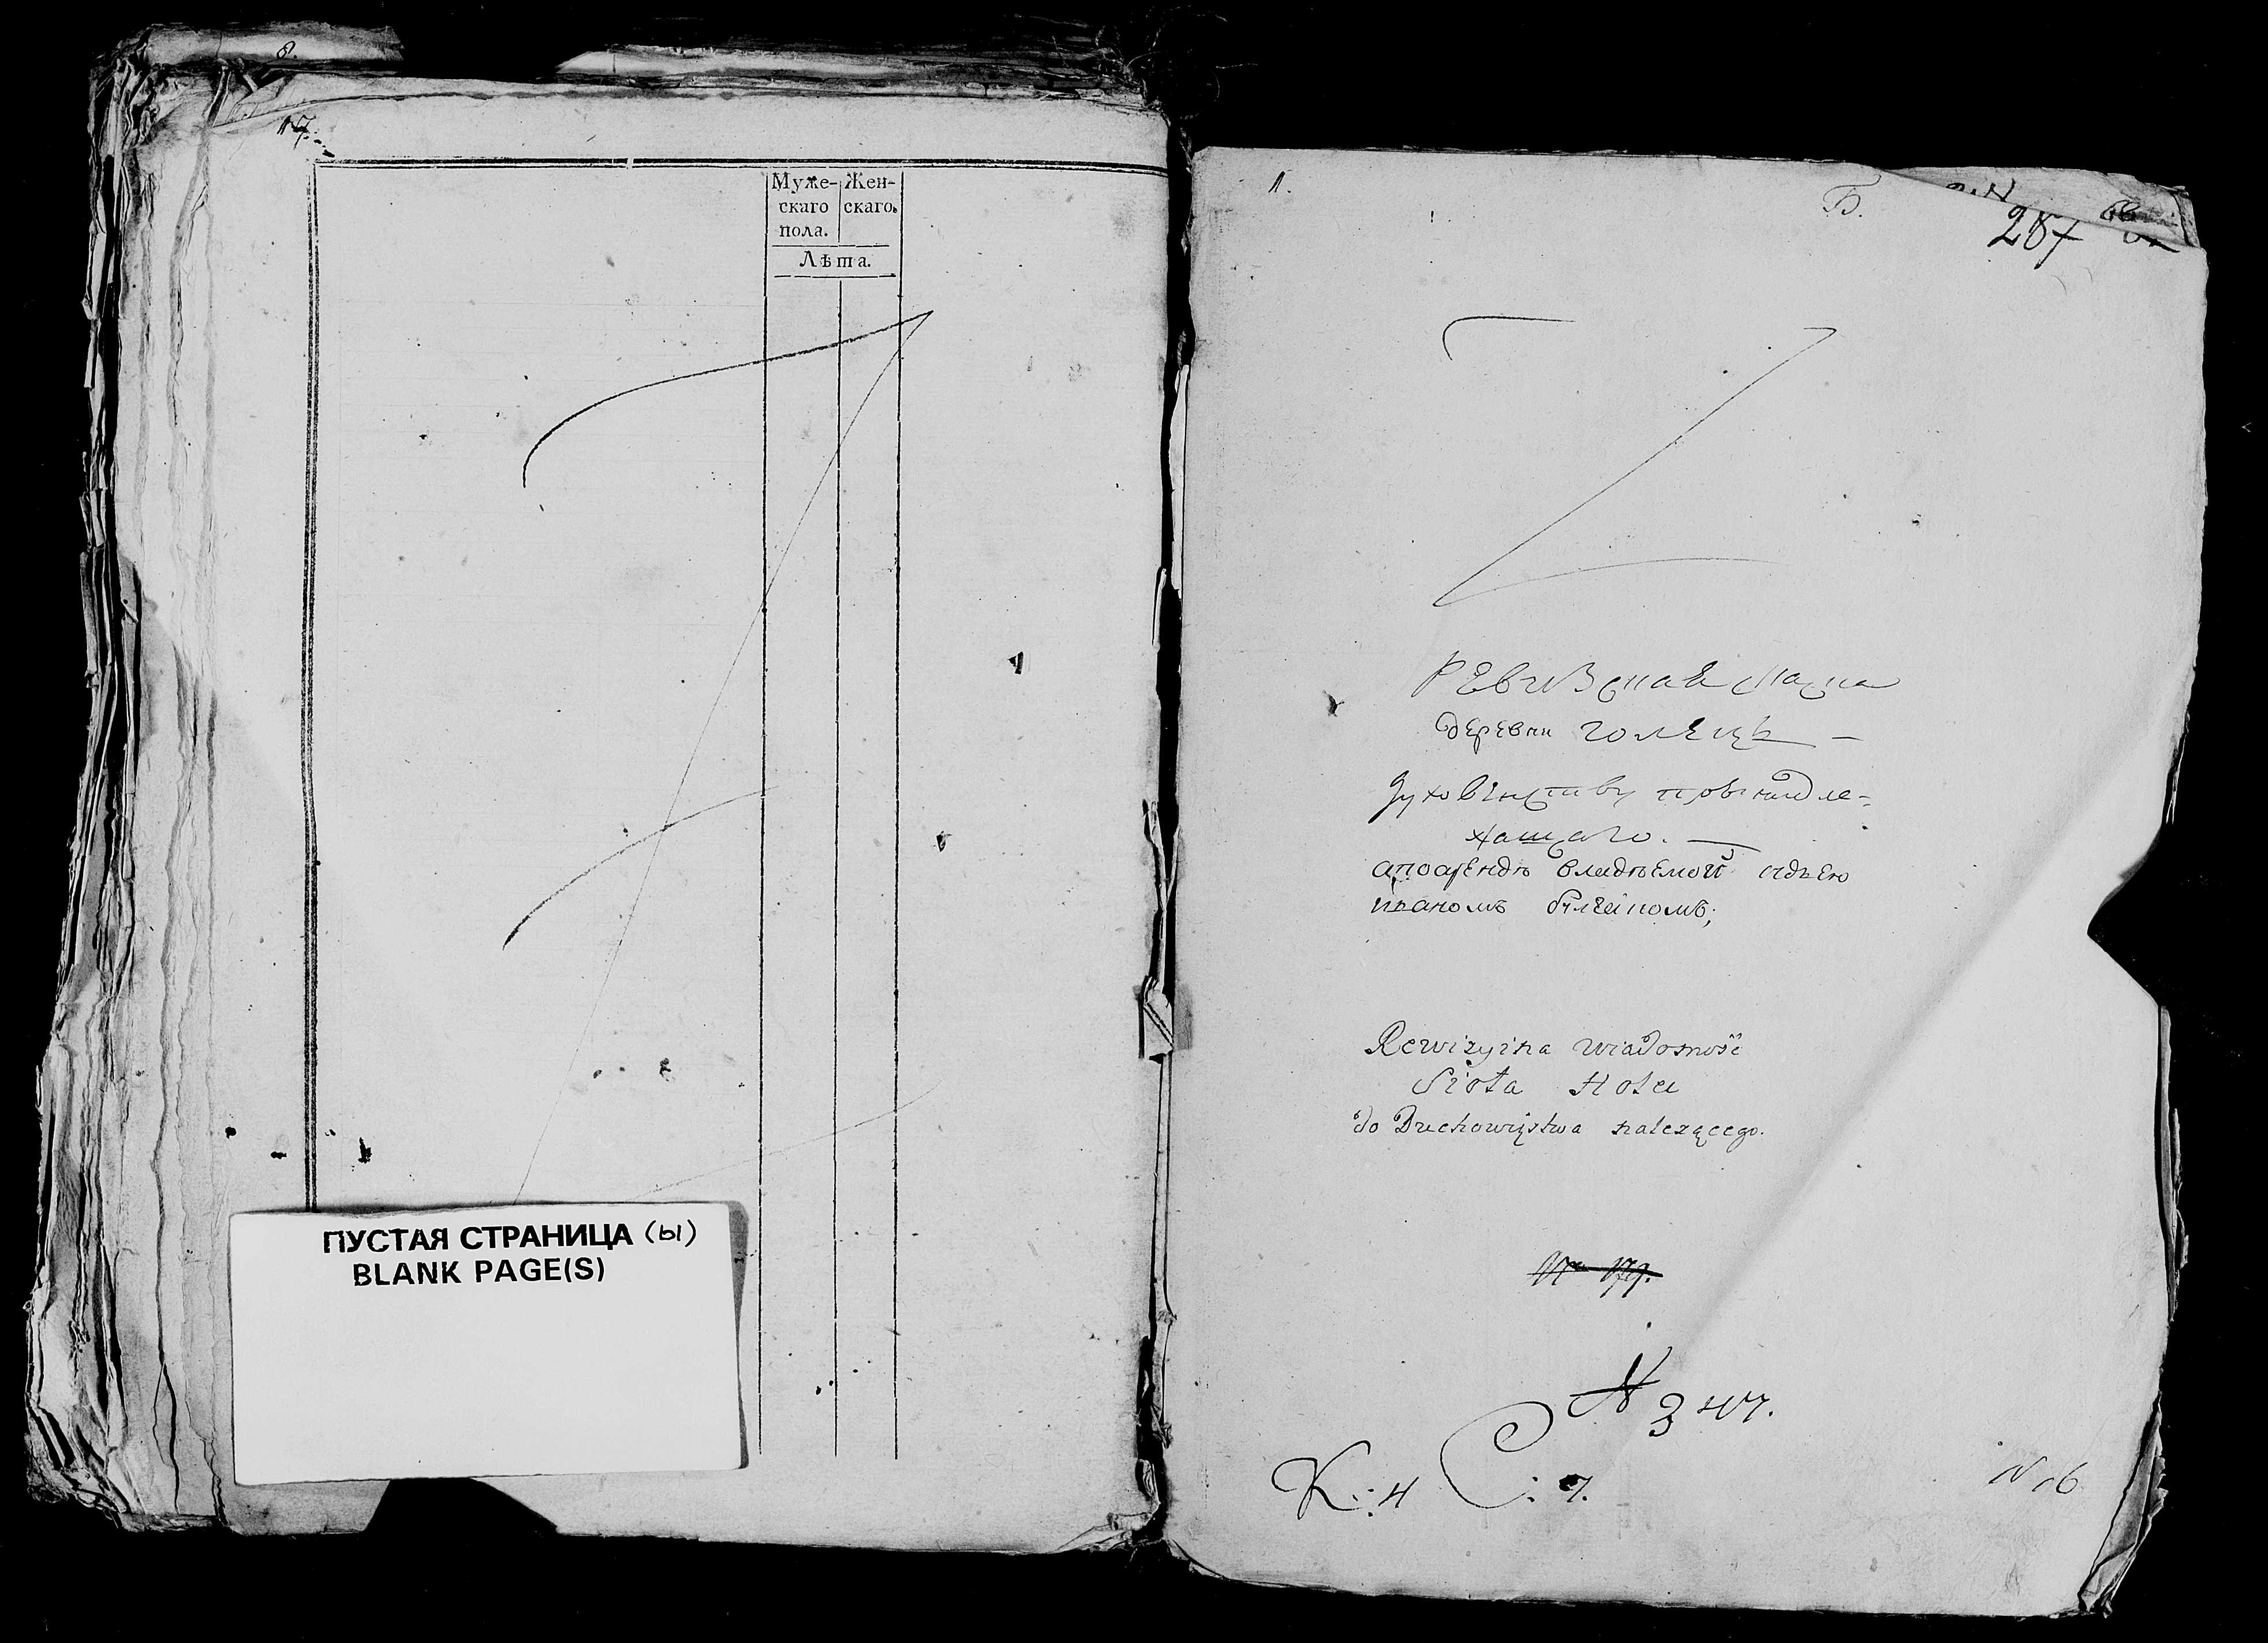 8.
17.
Муже- Жен-
скаго скаго.
пола.
Лѣта.
ПУСТАЯ СТРАНИЦА (Ы)
BLANK PAGE(S)
1.
Б.
287
Ревизская сказка
деревни
Духовенству принадле-
жащаго.
апоарендѣ владѣемой
иваномъ
Rewizyina wiadomość
Sioła
do Duchowięstwa należącego.
№ 179.
№ 347.
К: 4 С: 7.
N 16